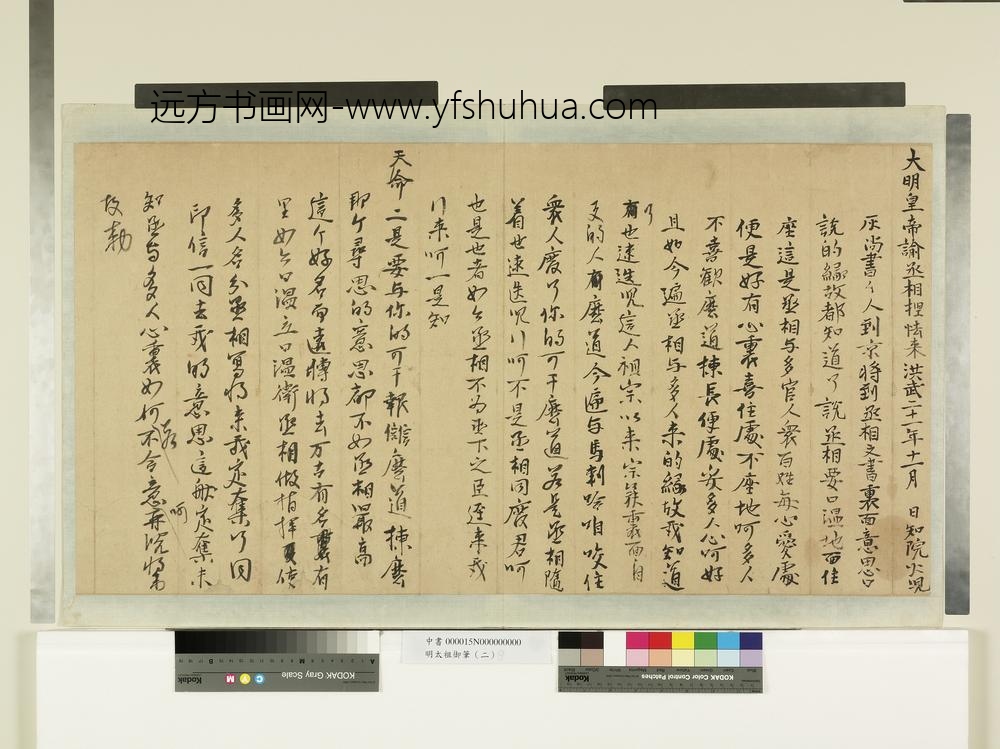 远方书画网-www.yfshuhua.com
大明皇帝諭丞相捏怯来洪武二十一年十一月 日知院火児
灰尚書等人到京将到丞相文書裏面意思口
說的緣故都知道了說丞相要口温地面住
座這是丞相与多官人衆百姓每心愛處
便是好有心裏喜住處不座地呵多人
不喜歡麽道揀長便處安多人心呵好
且如今遍丞相与多人来的緣故我知道
了
有世迭迭児這人祖宗以来宗枲裏面自
支的人有麽道今遍与馬剌哈咱咬住
衆人廢了你的可干麽道若是丞相隨
着世迭迭児行呵不是丞相同廢君呵
也是也者如今丞相不为亞下之臣逕来我
行来呵一是知
天命二是要与你的可干報讎麽道揀麽
那个尋思的意思都不如丞相最高
這个好名而遠博将去万古有名裏有
里如今口温立口温衛丞相做指揮使
多人各分丞相寫将来我定奪了同
印信一同去我的意思這般定奪未
知丞与多人心裏如何不合意再說将来
呵
故勅
KODAK Gray Scale
C Y M
Kodak
中書 000015N000000000
明太祖御筆（二）
KODAK Color Control Patches
Kodak